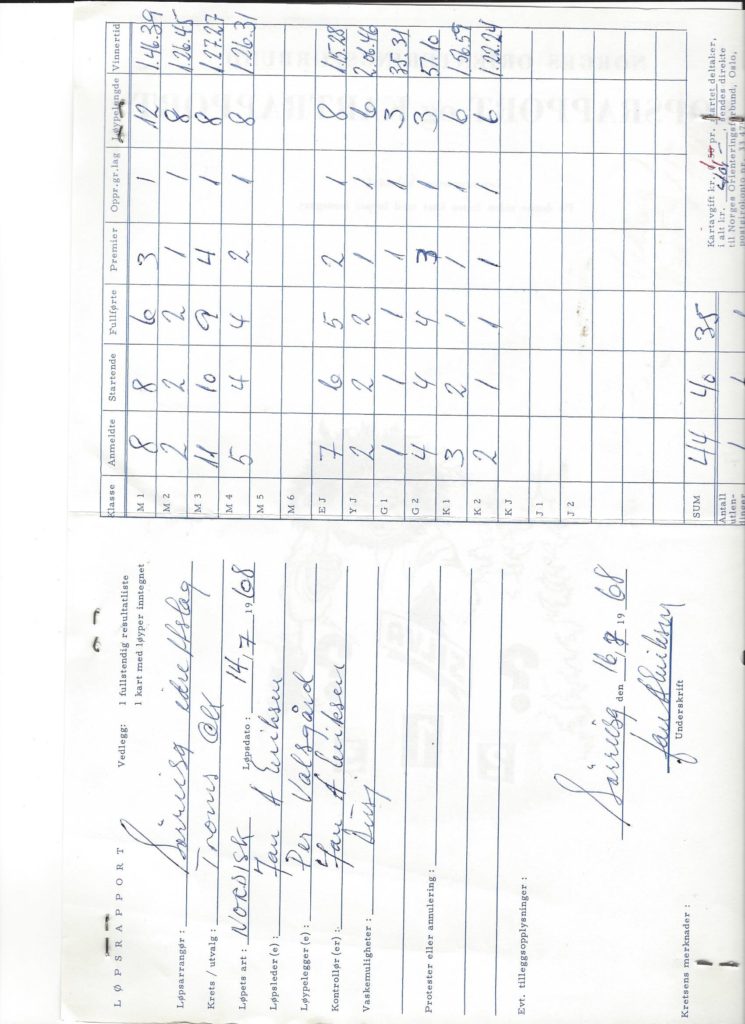 LØPSRAPPORT Vedlegg: 1 fullstendig resultatliste
1 kart med løyper inntegnet
Løpsarrangør: Sørreisa idrettslag
Krets / utvalg: Troms
Løpets art: NORDISK Løpsdato: 14/7 1968
Løpsleder(e): Jan A Eriksen
Løypelegger(e): Per Valsgård
Kontrollør(er): Jan A Eriksen
Vaskemuligheter:
Protester eller annulering:
Evt. tilleggsopplysninger:
Sørreisa den 16/7 1968
Jan A Eriksen
Underskrift
Kretsens merknader:
Klasse Anmeldte Startende Fullførte Premier Oppr.gr.lag Løypelengde Vinnertid
M 1 8 8 6 3 1 12 1.46.39
M 2 2 2 2 1 1 8 1.26.45
M 3 11 10 9 4 1 8 1.27.27
M 4 5 4 4 2 1 8 1.26.31
M 5
M 6
EJ 7 6 5 2 1 8 1.15.28
YJ 2 2 2 1 1 6 2.06.46
G 1 1 1 1 1 1 3 35.31
G 2 4 4 4 3 1 3 57.10
K 1 3 2 1 1 1 6 1.36.59
K 2 2 1 1 1 1 6 1.22.24
KJ
J 1
J 2
SUM 44 40 35
Antall
utlen-
dinger 1 1 1
Kartavgift kr. pr. startet deltaker,
i alt kr. , sendes direkte
til Norges Orienteringsforbund, Oslo,